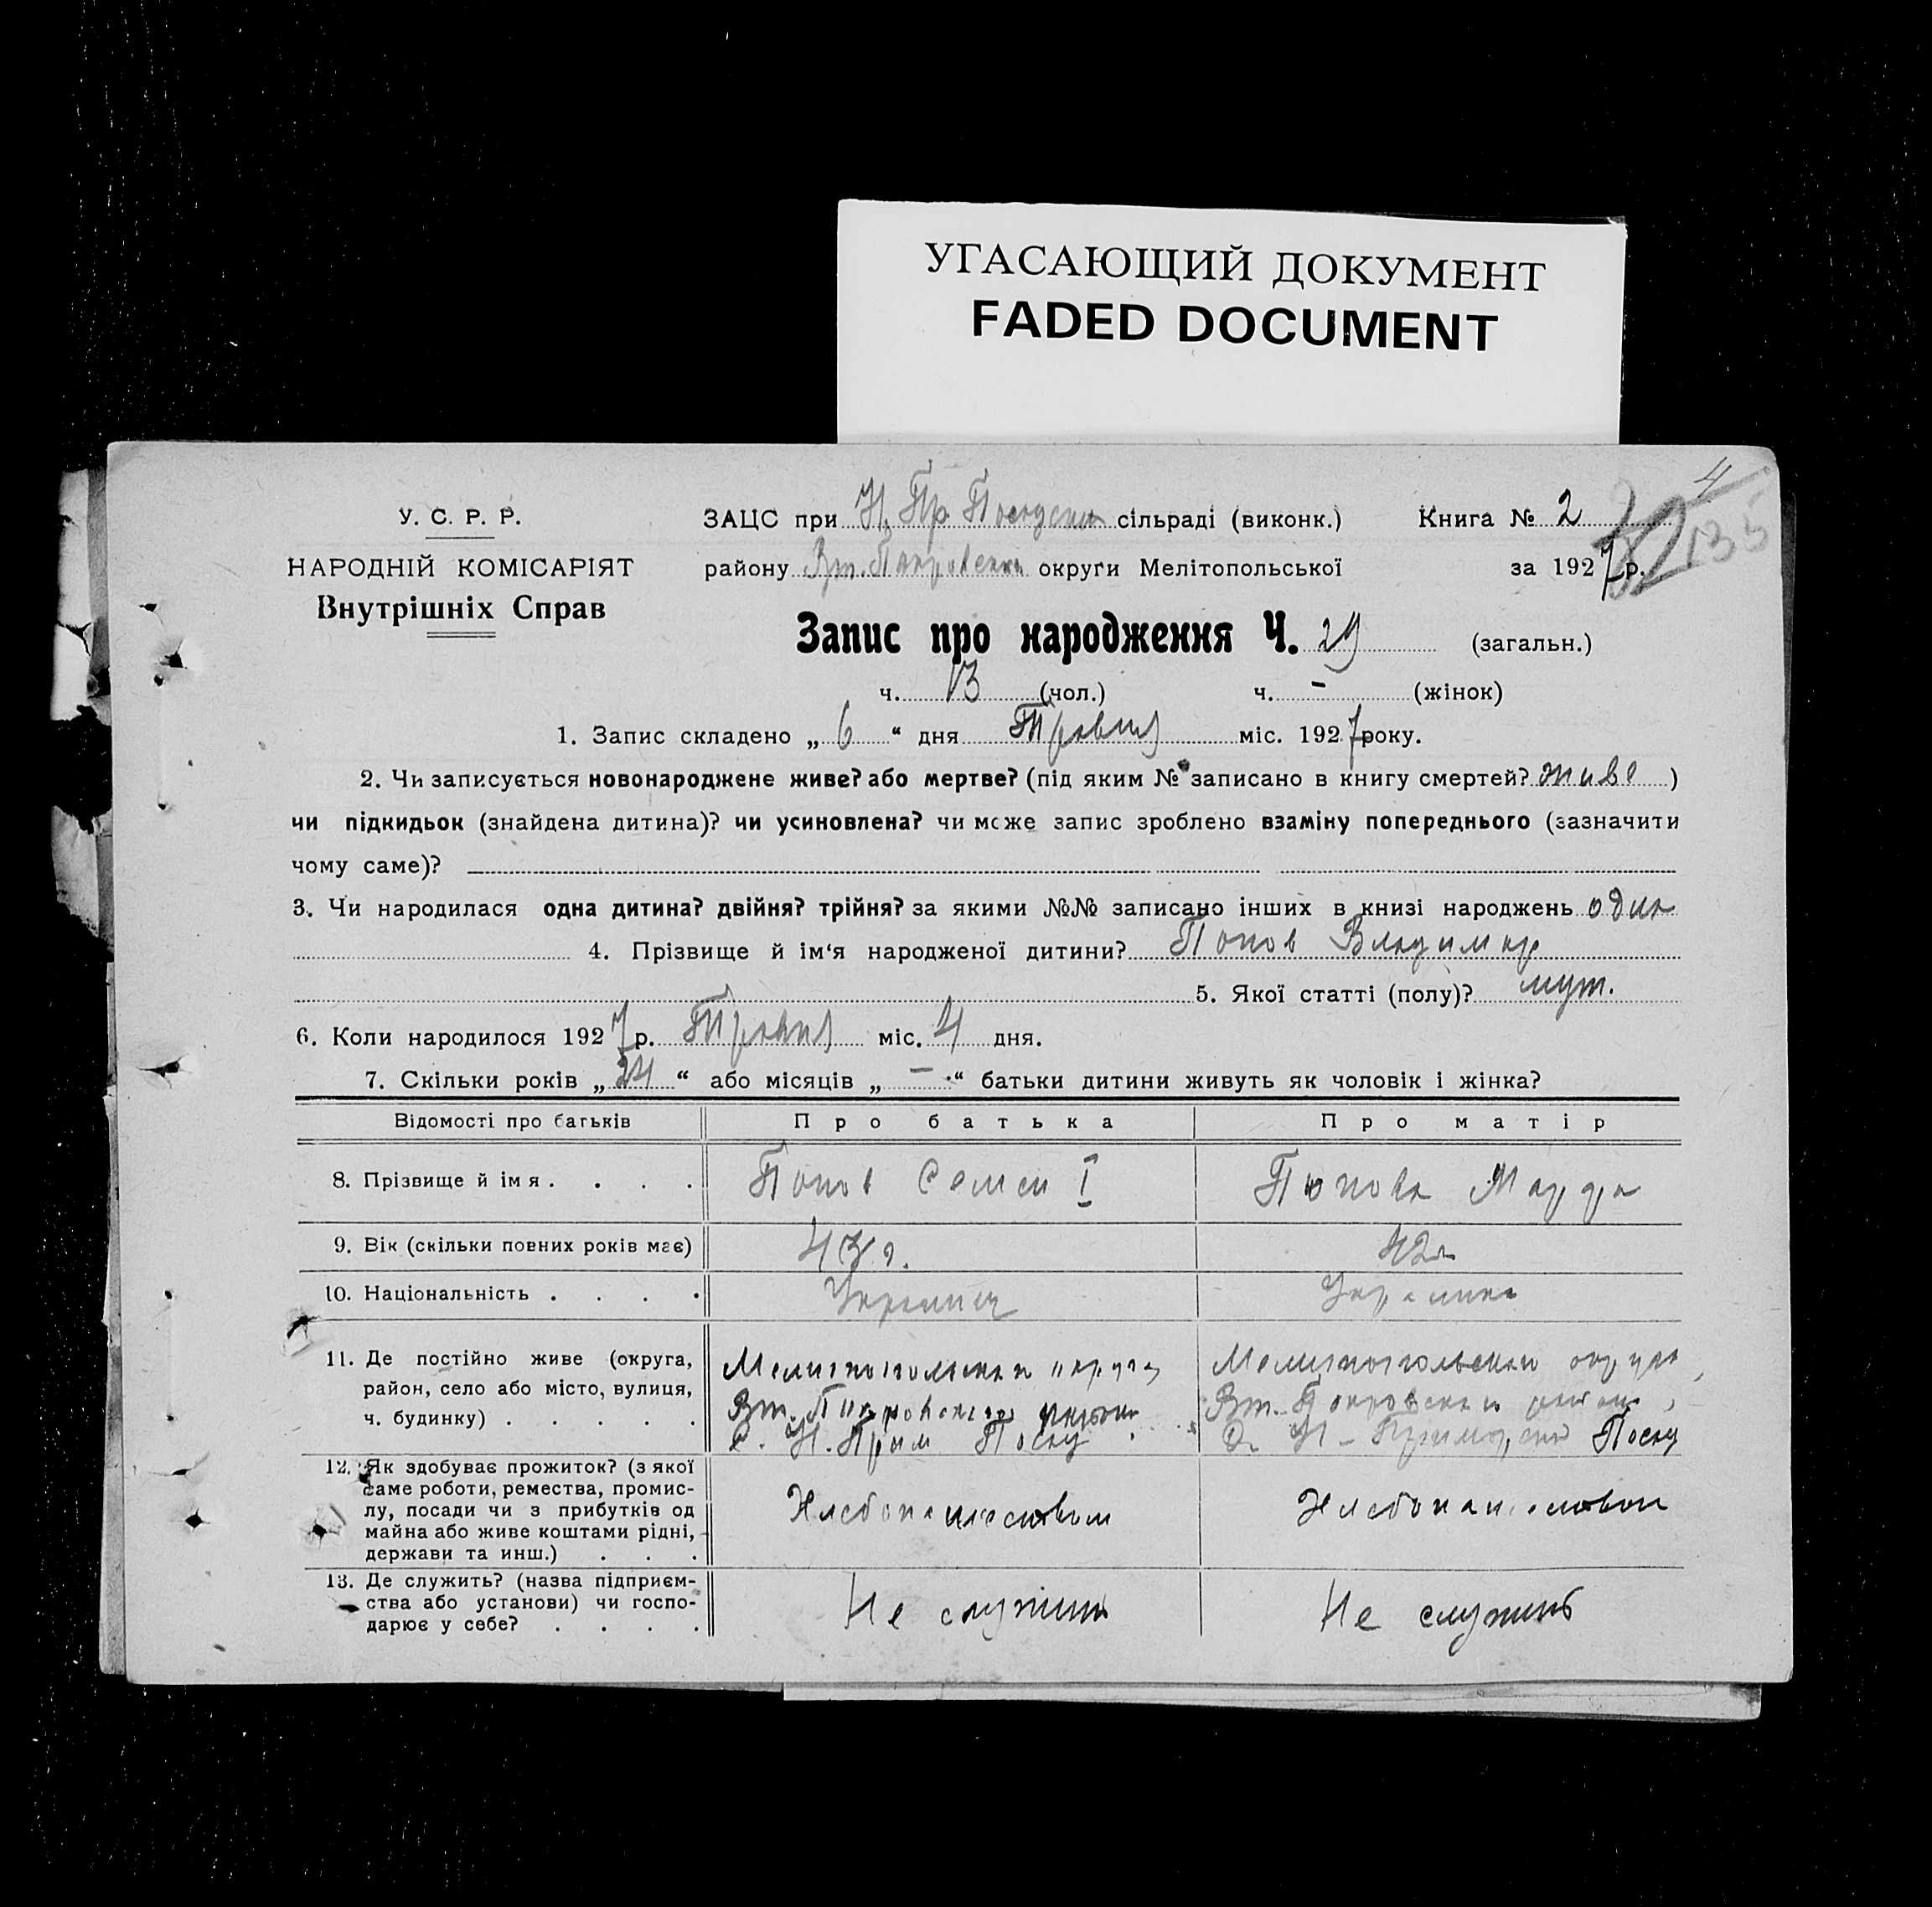 УГАСАЮЩИЙ ДОКУМЕНТ
FADED DOCUMENT
4
135
У. С. Р. Р.
НАРОДНІЙ КОМІСАРІЯТ
Внутрішніх Справ
ЗАЦС при Н. Пр Посадским сільраді (виконк.) Книга № 2
району Вт. Покровским округи Мелітопольської за 1927 р.
Запис про народження Ч. 29 (загальн.)
ч. 13 (чол.) ч. - (жінок)
1. Запис складено „ 6 “ дня Травня міс. 1927 року.
2. Чи записується новонароджене живе? або мертве? (під яким № записано в книгу смертей? живе )
чи підкидьок (знайдена дитина)? чи усиновлена? чи може запис зроблено взаміну попереднього (зазначити
чому саме)?
3. Чи народилася одна дитина? двійня? трійня? за якими №№ записано інших в книзі народжень одна
4. Прізвище й ім‘я народженої дитини? Попов Владимир
5. Якої статті (полу)?
6. Коли народилося 1927 р. Травня міс. 4 дня.
7. Скільки років „ 24 “ або місяців „ - “ батьки дитини живуть як чоловік і жінка?
Відомості про батьків Про батька Про матір
8. Прізвище й імя . . . . Попов Семен I Попова Марфа
9. Вік (скільки повних років має) 43 г. 42
10. Національність . . . . Украинец Украинка
11. Де постійно живе (округа,
район, село або місто, вулиця,
ч. будинку) . . . . .
Мелитопольская округа
Вт. Покровского района
С. Н. Прим Посад
Мелитопольская округа,
Вт. Покровского района,
С. Н - Примор, Посад
12. Як здобуває прожиток? (з якої
саме роботи, ремества, промис-
лу, посади чи з прибутків од
майна або живе коштами рідні,
держави та инш.) . . .
Хлебопашеством
Хлебопашеством
13. Де служить? (назва підприєм-
ства або установи) чи госпо-
дарює у себе? . . . .
Не служит
Не служить